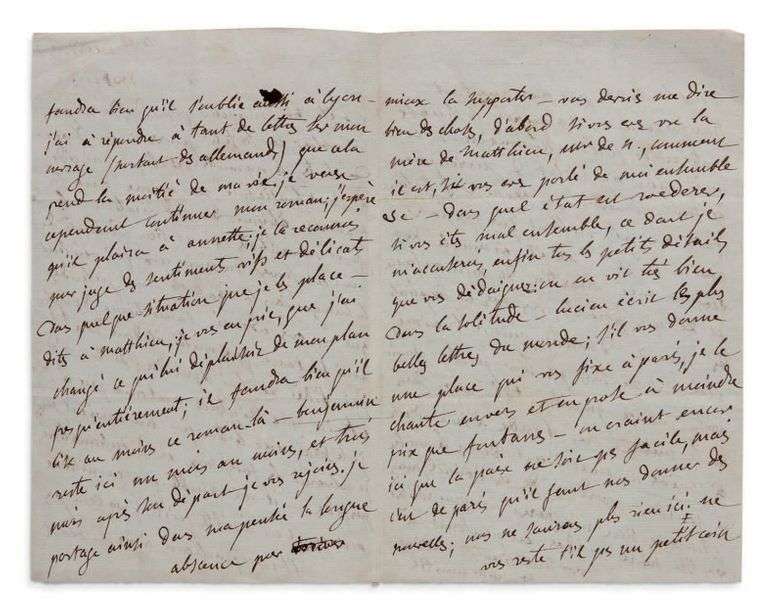 faudra bien qu'il s'oublie aussi à lyon –
j'ai à répondre à tant de lettres sur mon
ouvrage (surtout des allemands) que cela
prend la moitié de ma vie. je veux
cependant continuer mon roman; j'espère
qu'il plaira à annette; je la reconnais
pour juge des sentiments vifs et délicats
dans quelque situation que je les place –
dites à matthieu, je vous en prie, que j'ai
changé ce qui lui déplaisoit de mon plan
presqu'entièrement; il faudra bien qu'il
lise au moins ce roman-là – benjamin
reste ici un mois au moins, et trois
mois après son départ je vous rejoins. je
partage ainsi dans ma pensée la longue
absence pour
mieux la supporter – vous devriez me dire
bien des choses, d'abord si vous avez vu la
mère de matthieu, de n., comment
il est, si vous avez parlé de moi ensemble
– dans quel état est roederer,
si vous êtes mal ensemble, ce dont je
m'accuserais, enfin tous les petits détails
que vous dédaignez on en vit très bien
dans la solitude – lucien écrit les plus
belles lettres du monde; s'il vous donne
une place qui vous fixe à paris, je le
chante en vers et en prose à moindre
prix que fontanes – on craint encore
ici que la paix ne soit pas facile, mais
c'est de paris qu'il faut nous donner des
nouvelles; nous ne saurons plus rien ici. ne
vous reste t'il pas un petit coin